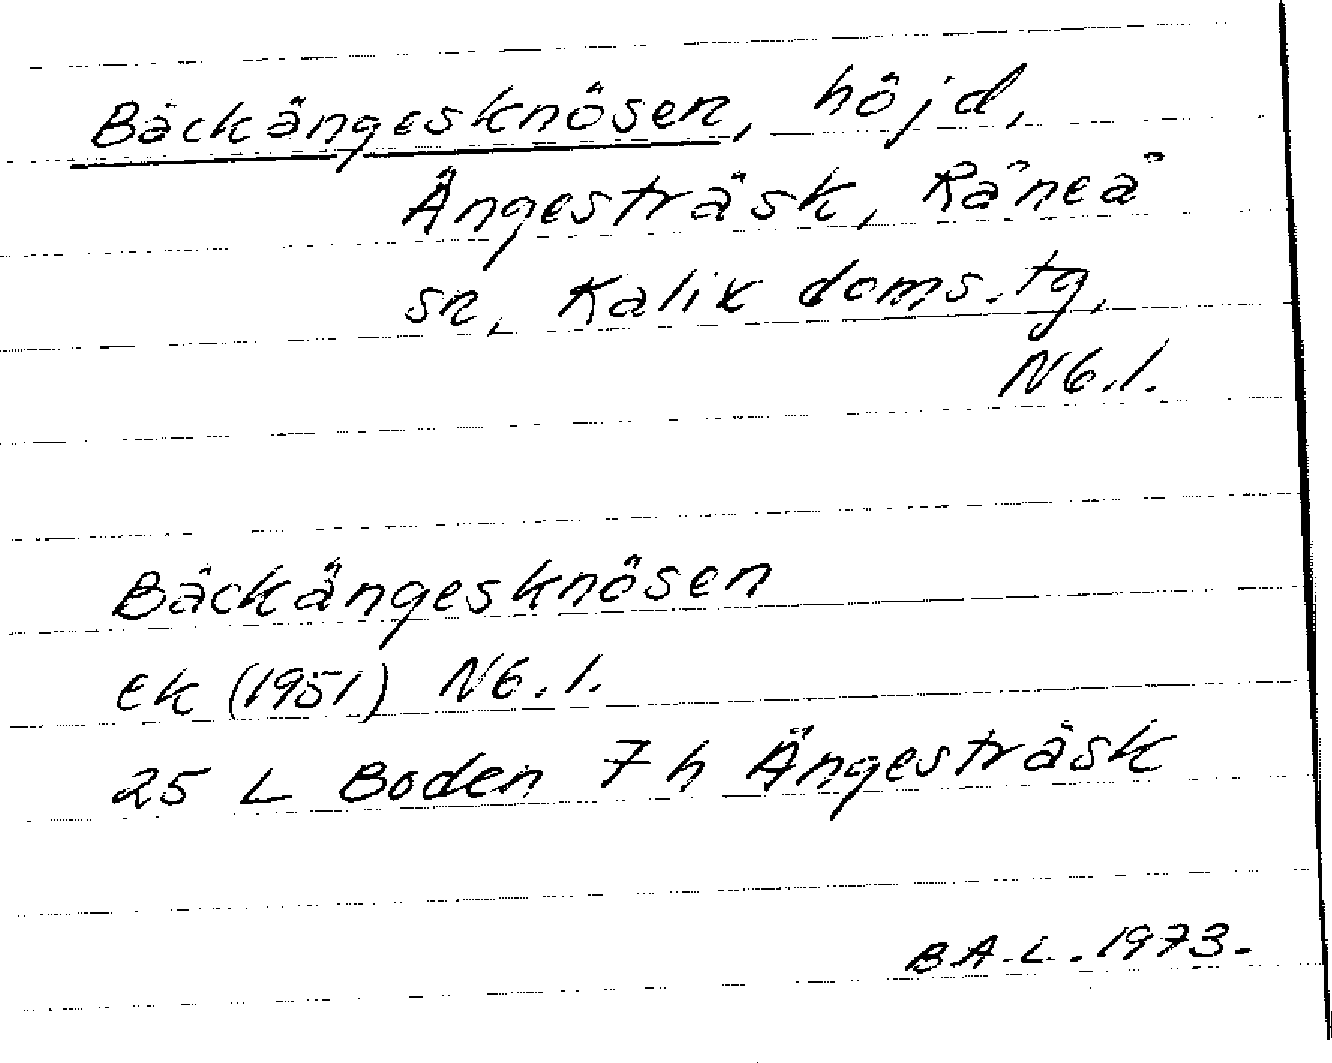 Bäckängesknösen, höjd,
Ängesträsk, Råneå
sn, Kalix doms.tg,
Nb.l.
Bäckängesknösen
ek (1951) Nb.l.
25 L Boden 7 h Ängesträsk
B A.L. 1973.